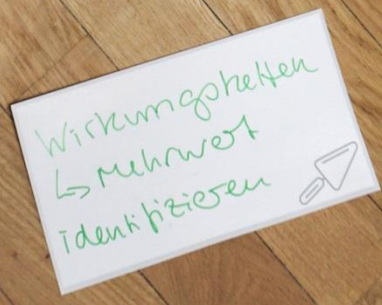 Wirkungsketten
↳ Mehrwert
identifizieren